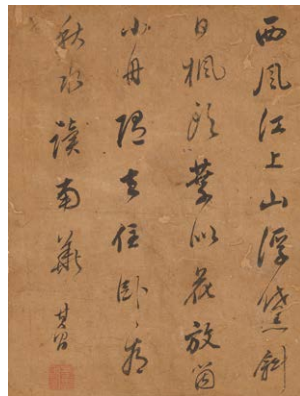 西風江上山浮黛斜
日楓頭葉似花放箇
小舟隨去住臥看
秋水讀南華
其昌